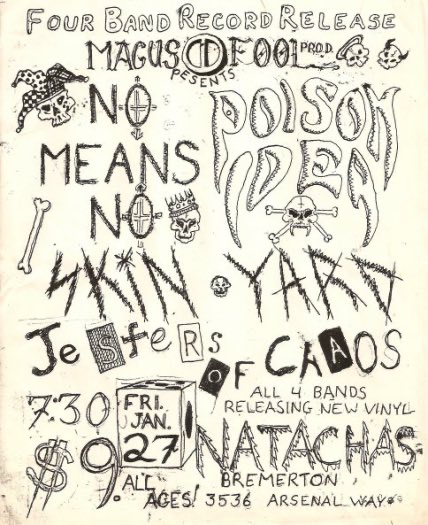 FOUR BAND RECORD RELEASE
MAGUS FOOL PROD.
PESENTS
NO
MEANS
NO
POISON
IDEA
SKIN YARD
JeSTeRS
OF CHAOS
ALL 4 BANDS
RELEASING NEW VINYL
7:30
FRI.
JAN.
27
$9.
NATACHAS
ALL
AGES!
BREMERTON
3536 ARSENAL WAY